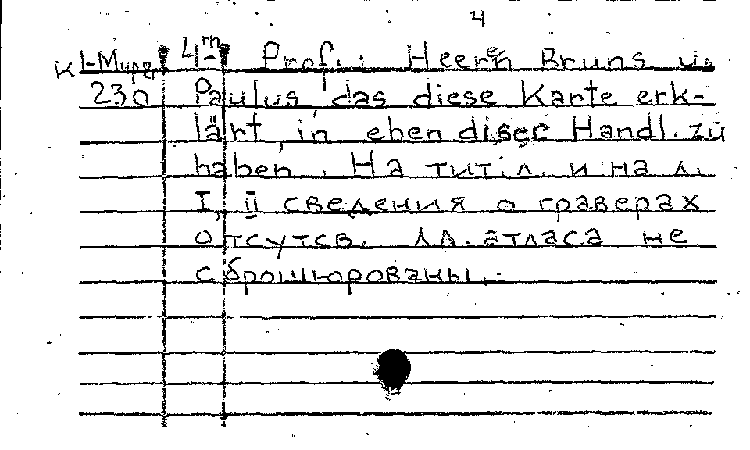 4
К 1-Мира 4m Prof.: Heern Bruns u.
230 Paulus das diese Karte erk-
lärt in eben diser Handl. zu
haben. На тит. л. и на л.
I, II сведения о граверах
отсутсв. Лл. атласа не
сброшюрованы.-